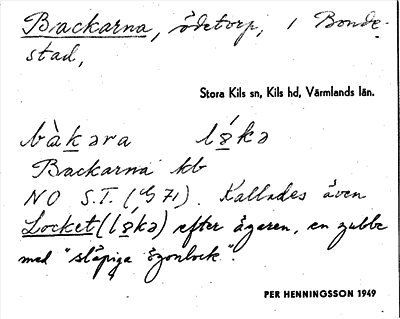 Backarna, ödetorp, i Bonde-
stad,
Stora Kils sn, Kils hd, Värmlands län.
bàkara lókə
Backarna kb
NO S.T. (G 71). Kallades även
Locket (lókə) efter ägaren, en gubbe
med "släpiga ögonlock".
PER HENNINGSSON 1949